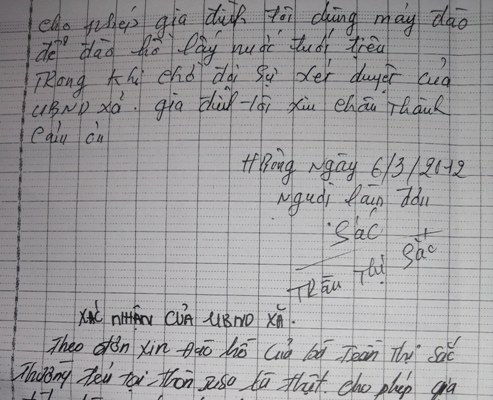 cho phép gia đình tôi dùng máy đào
để đào hồ lấy nước tưới tiêu
Trong khi chờ đợi sự xét duyệt của
UBND xã. gia đình tôi xin chân Thành
cảm ơn
ngày 6/3/2012
người làm đơn
Sắc
Trần Thị Sắc
XÁC NHẬN CỦA UBND XÃ.
Theo đơn xin đào hồ của bà Trần Thị Sắc
Thường trú tại thôn là thật. cho phép gia